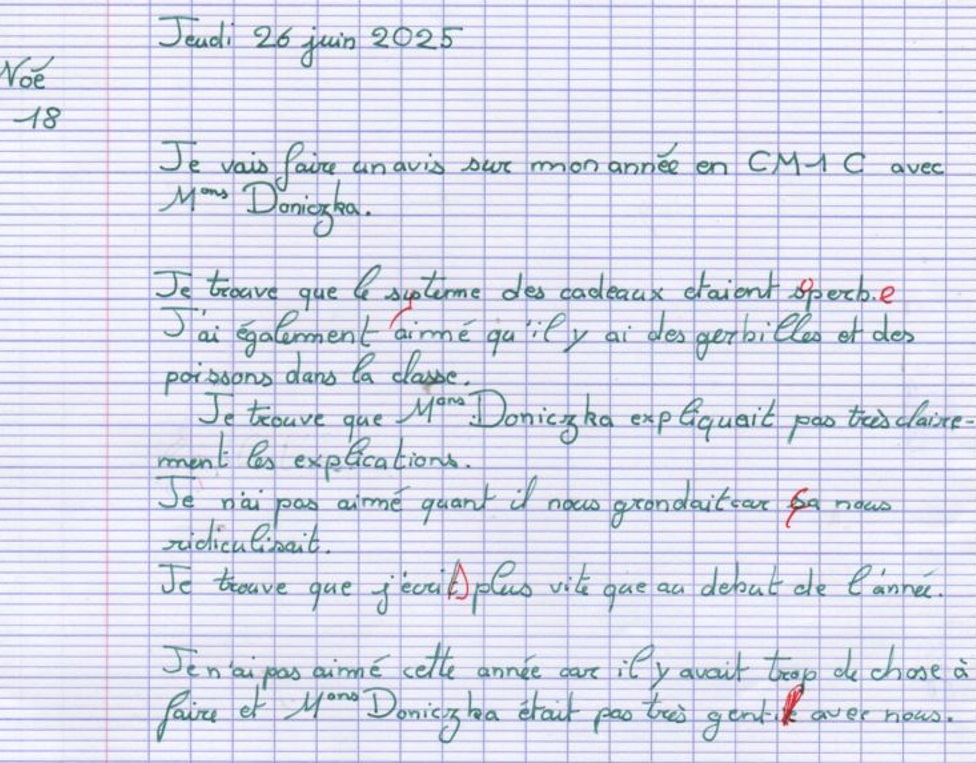 Jeudi 26 juin 2025
Noé
18
Je vais faire un avis sur mon année en CM1 C avec
Mons Doniczka.
Je trouve que le système des cadeaux etaient sperbe
J'ai également aimé qu'il y ai des gerbilles et des
poissons dans la classe.
Je trouve que Mons Doniczka expliquait pas très claire-
ment les explications.
Je n'ai pas aimé quant il nous grondait car ça nous
ridiculisait.
Je trouve que j'écrits plus vite que au debut de l'année.
Je n'ai pas aimé cette année car il y avait trop de chose à
faire et Mons Doniczka était pas très gentil avec nous.